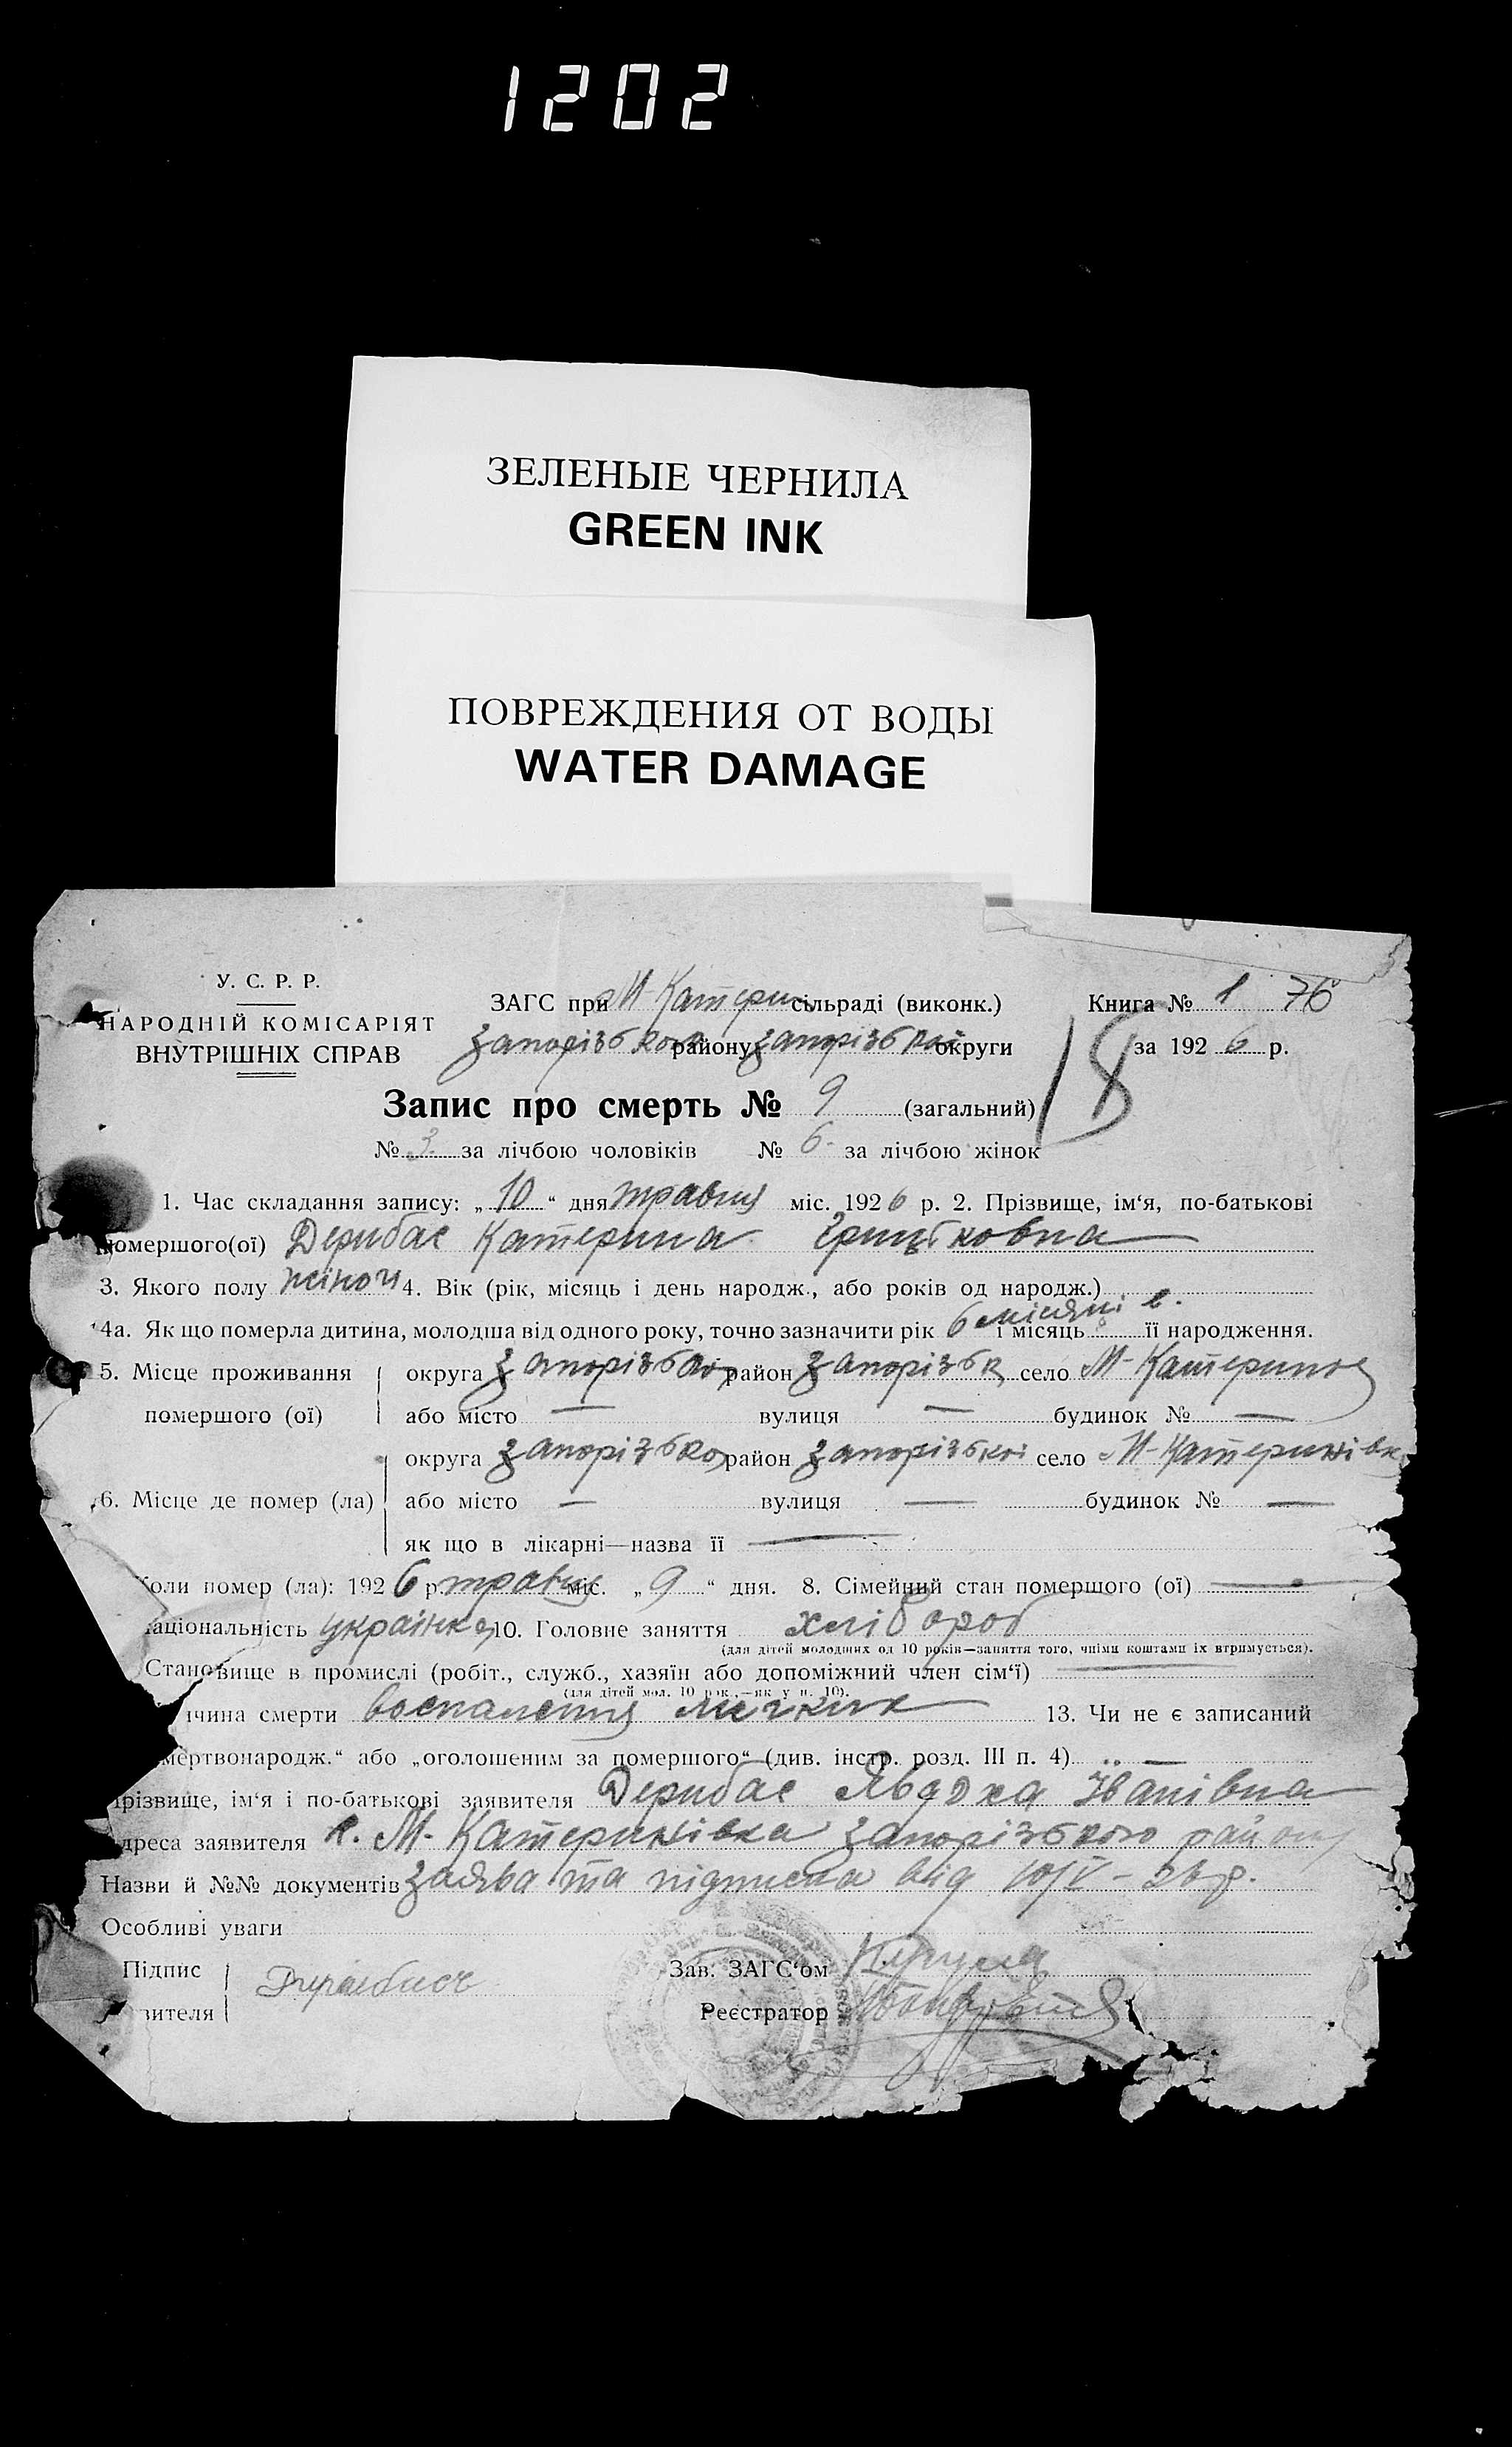 1202
ЗЕЛЕНЫЕ ЧЕРНИЛА
GREEN INK
ПОВРЕЖДЕНИЯ ОТ ВОДЫ
WATER DAMAGE
У. С. Р. Р.
НАРОДНІЙ КОМІСАРІЯТ
ВНУТРІШНІХ СПРАВ
ЗАГС при М-Катерин. сільраді (виконк.)
Запорізького району Запорізької округи
Книга № 1 76
за 1926 р.
18
Запис про смерть № 9 (загальний)
№ 3 за лічбою чоловіків № 6 за лічбою жінок
1. Час складання запису: „10“ дня травня міс. 1926 р. 2. Прізвище, ім‘я, по-батькові
помершого(ої) Дерибас Катерина
3. Якого полу жіноч 4. Вік (рік, місяць і день народж., або років од народж.)
4а. Як що померла дитина, молодша від одного року, точно зазначити рік 6 місяці і місяць її народження.
5. Місце проживання округа Запорізької район Запорізьк село М-Катеринов
помершого (ої) або місто — вулиця — будинок № —
округа Запорізької район Запорізької село М-Катеринівк
6. Місце де помер (ла) або місто — вулиця — будинок № —
як що в лікарні—назва її —
Коли помер (ла): 1926 р. травня міс. „9“ дня. 8. Сімейний стан помершого (ої) —
аціональність українка 10. Головне заняття хлібороб
(для дітей молодших од 10 років—заняття того, чиїми коштами їх втримується).
Становище в промислі (робіт., служб., хазяїн або допоміжний член сім‘ї) —
(для дітей мол. 10 рок.,—як у п. 10).
ичина смерти воспалення 13. Чи не є записаний
мертвонародж.“ або „оголошеним за помершого“ (див. інстр. розд. III п. 4) —
різвище, ім‘я і по-батькові заявителя Дерибас Явдоха Іванівна
дреса заявителя с. М-Катеринівка Запорізького району
Назви й №№ документів заява та підписка від 10/V-26р.
Особливі уваги
Підпис
вителя
Зав. ЗАГС‘ом
Реєстратор